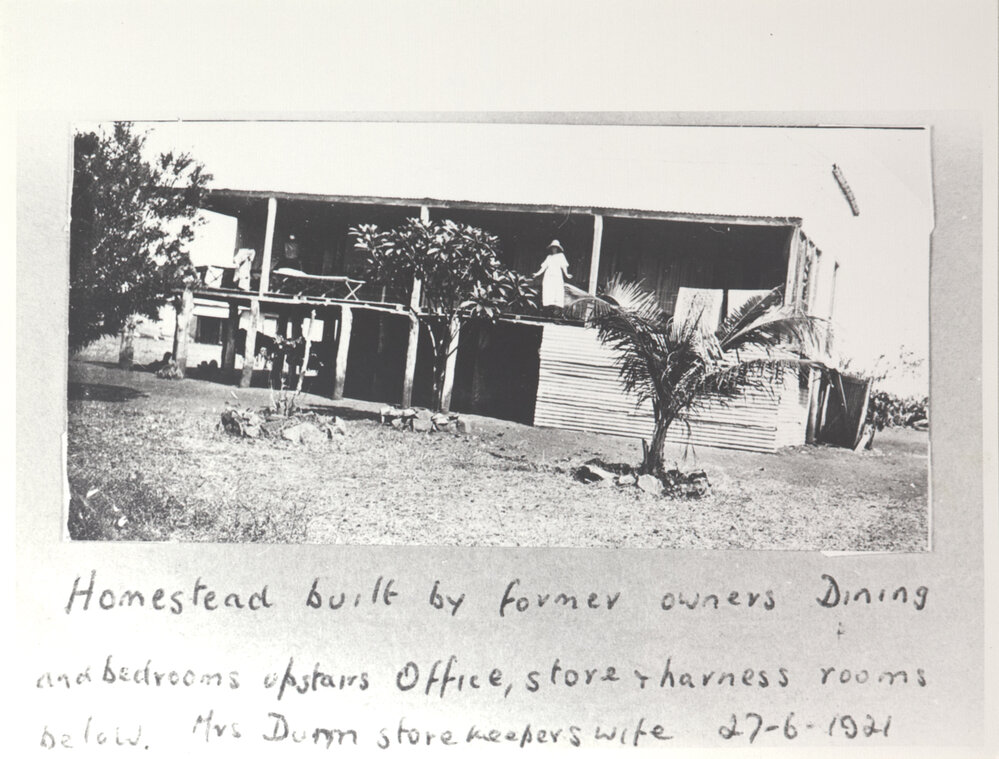 Homestead built by former owners Dining
and bedrooms upstairs Office, store + harness rooms
below. Mrs Dunn storekeepers wife 27-6-1921